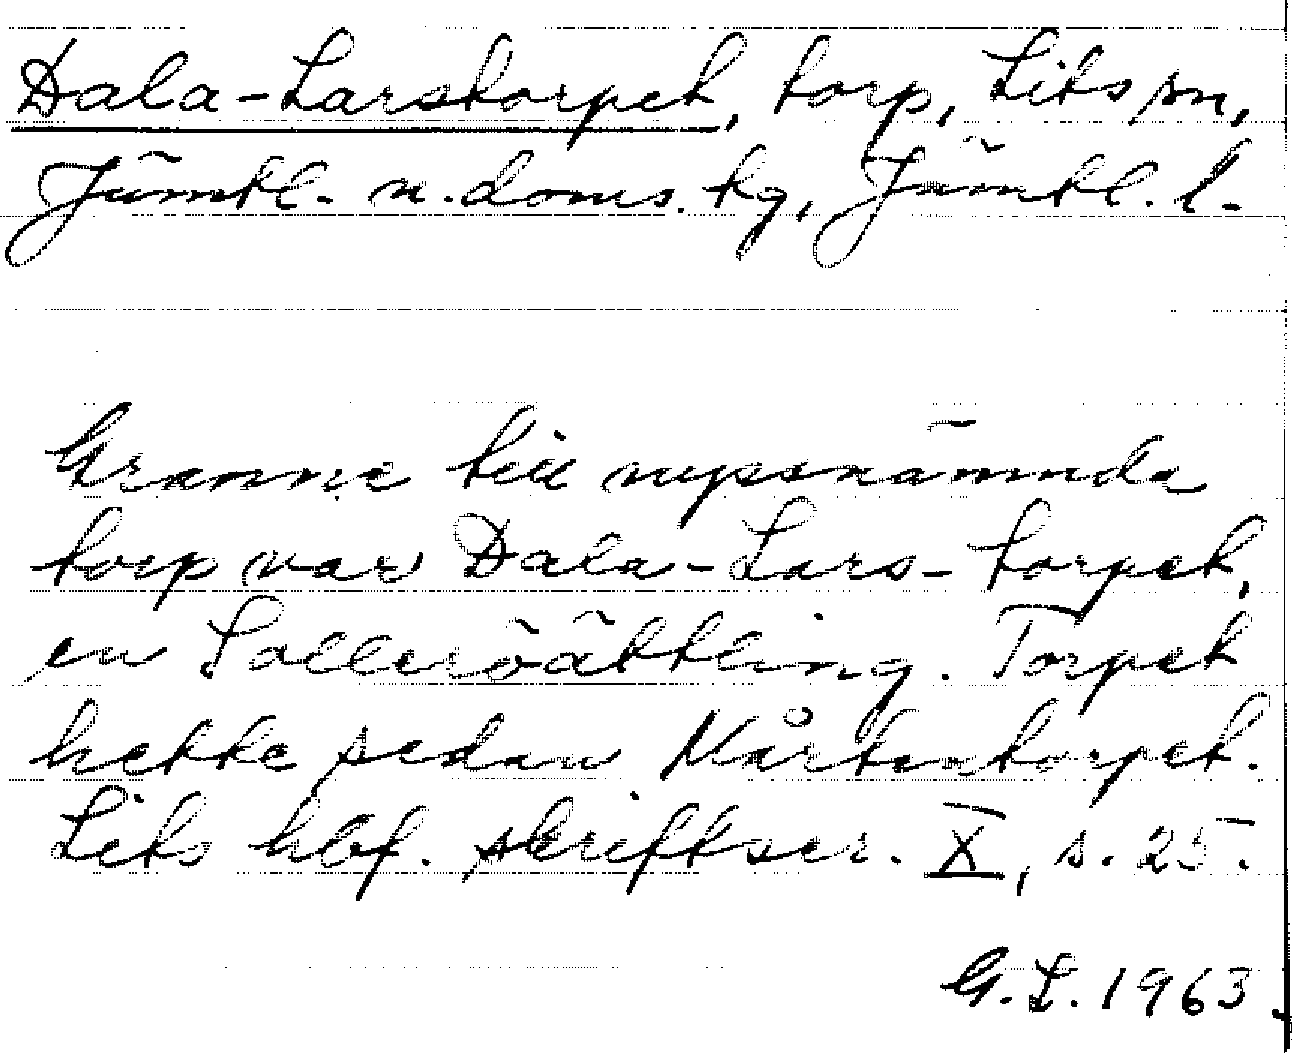 Dala-Larstorpet, torp, Lits sn,
Jämtl. n. doms. tg, Jämtl. l.
Granne till nyssnämnda
torp var Dala-Lars-torpet,
en Solleröättling. Torpet
hette sedan Mårtentorpet.
Lits hbf. skriftser. X, s. 25.
G. L. 1963.